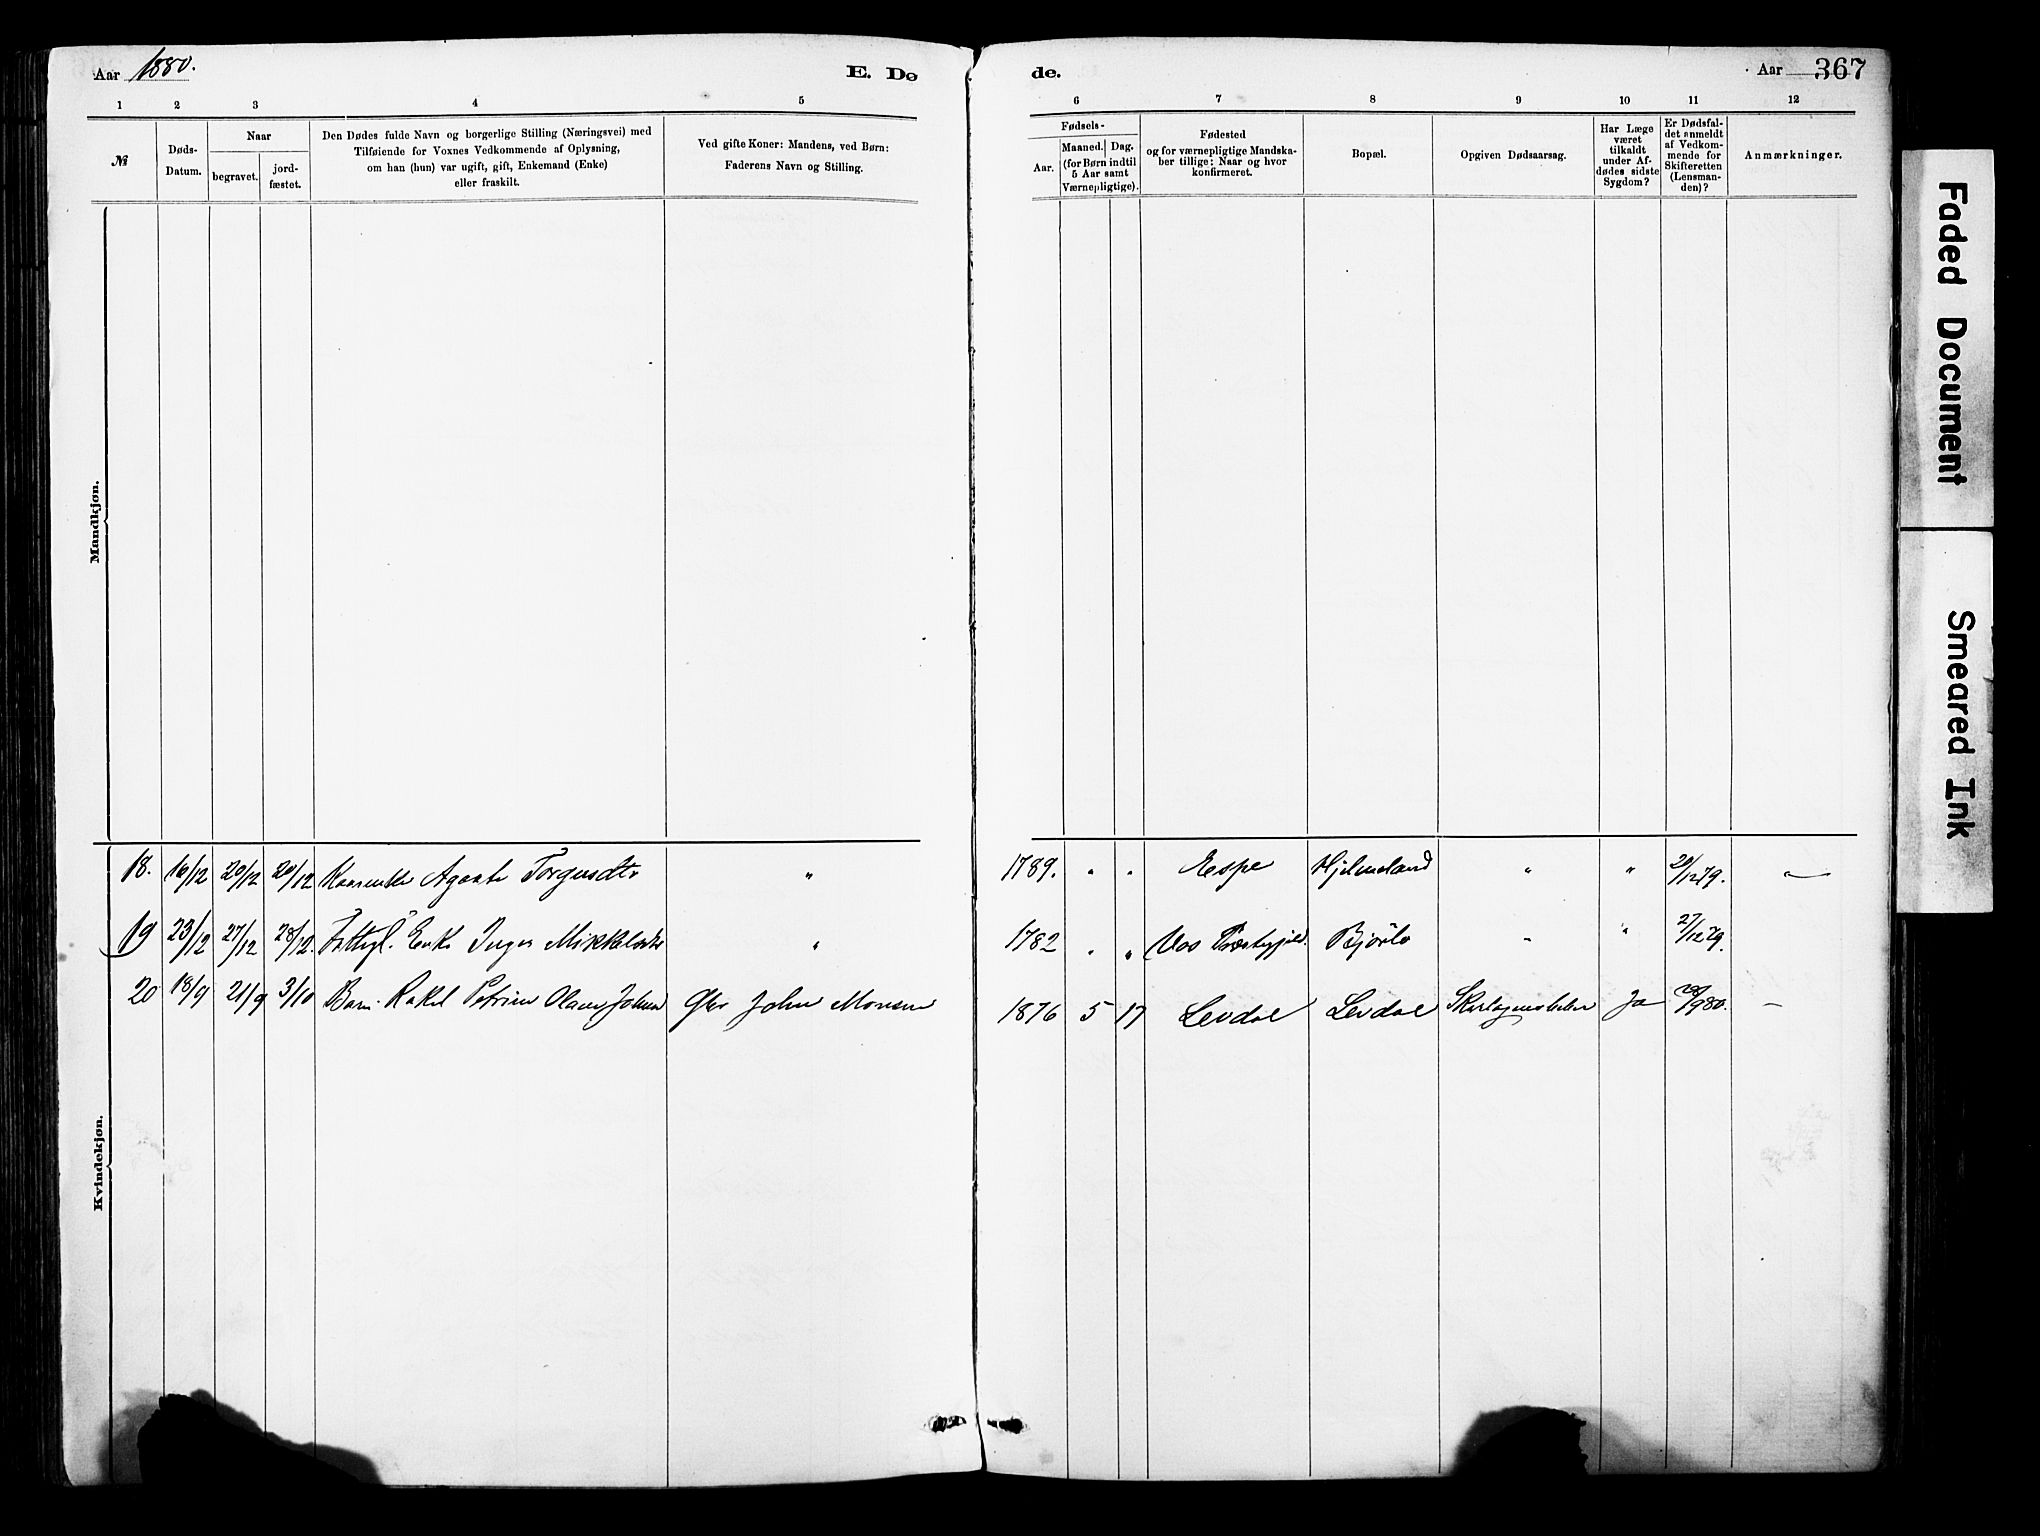 Aar 1880.
E. Dø
de.
Aar
367
1 2 3 4 5
6 7 8 9 10 11 12
№
Døds-
Datum.
Naar
begravet.
jord-
fæstet.
Den Dødes fulde Navn og borgerlige Stilling (Næringsvei) med
Tilføiende for Voxnes Vedkommende af Oplysning,
om han (hun) var ugift, gift, Enkemand (Enke)
eller fraskilt.
Ved gifte Koner: Mandens, ved Børn:
Faderens Navn og Stilling.
Fødsels-
Aar.
Maaned. Dag.
(for Børn indtil
5 Aar samt
Værnepligtige).
Fødested
og for værnepligtige Mandska-
ber tillige: Naar og hvor
konfirmeret.
Bopæl.
Opgiven Dødsaarsag.
Har Læge
været
tilkaldt
under Af-
dødes sidste
Sygdom?
Er Dødsfal-
det anmeldt
af Vedkom-
mende for
Skifteretten
(Lensman-
den)?
Anmærkninger.
Mandkjøn.
Kvindekjøn.
18. 16/12 20/12 20/12 Agaate Torgersdtr " 1789. " " Espe Hjelmeland " " 20/12 79. —
19 23/12 27/12 28/12. Enke Inger " 1782 " " Vos Præstegjeld. " " 27/12 79.
20 18/9 21/9 3/10 Barn Rakel Petrine John Monsen 1876 5 17 Levdal Levdal Ja 28/9 80. —
Faded Document
Smeared Ink